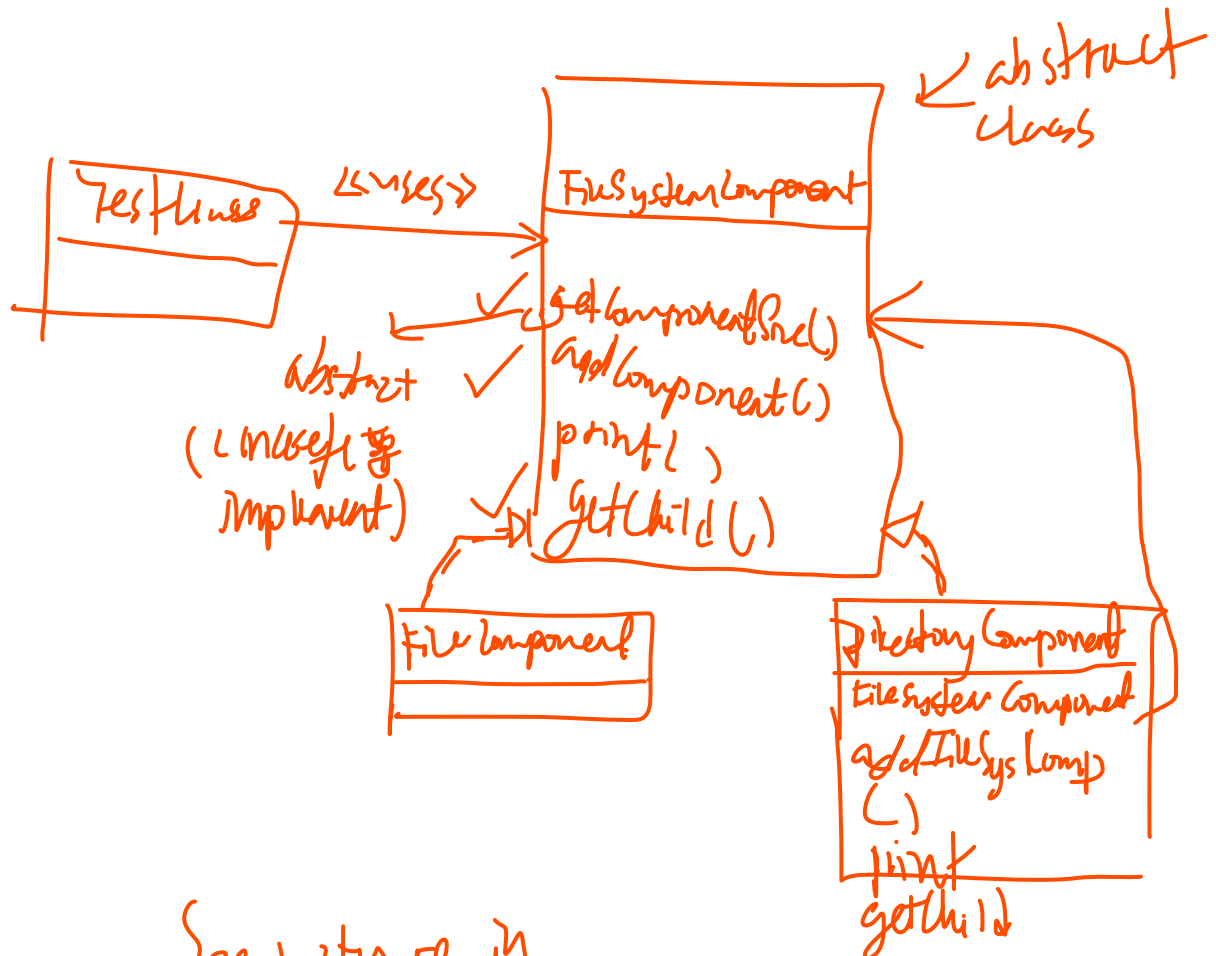 abstract
class
TestClass
<<uses>>
FileSystemComponent
getComponentSize()
addComponent()
print()
getChild()
abstract
(
implement)
FileComponent
DirectoryComponent
FileSystemComponent
addFileSysComp
()
print
getChild
in